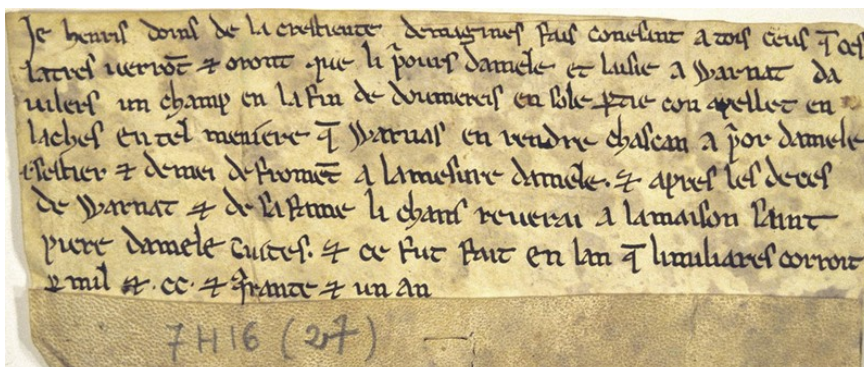 Je henris doins de la crestiente demagines fais conesant a tois ceus q̄ ces
latres uerrōt ⁊ oront que li p̄ours damele et lusie a Warnat da
uilers un champ en la fin de doumereis en sole ꝑtie con apellet en
laches en tel meniere q̄ Warnas en rendre chascan a p̄or damele
.i. sestier ⁊ demei de fromēt a lamesure damele. ⁊ apres les deces
de Warnat ⁊ de sa fame li chans reuerai a lamaison saint
piere damele Tuites. ⁊ ce fut fait en lan q̄ li miliares corroit
ꝑ mil ⁊ .cc. ⁊ q̄rante ⁊ un an
7 H 16 (27)